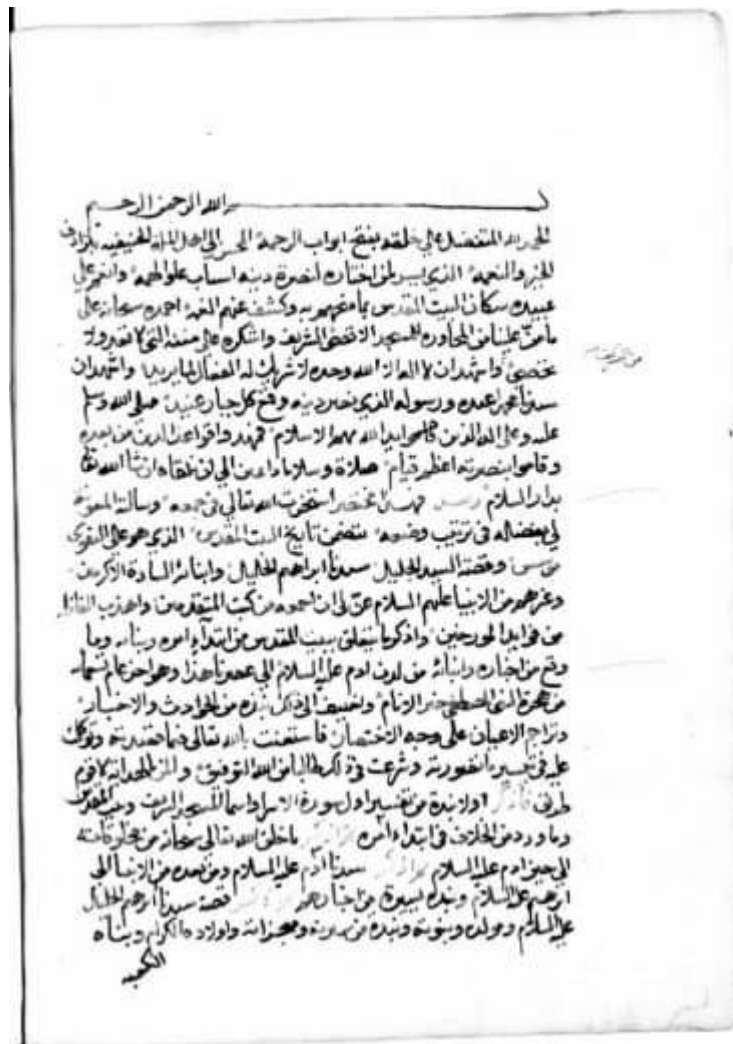 بسم الله الرحمن الرحيم
الحمد لله المتفضل على خلقه بفتح ابواب الرحمة المحسن الى اهل الملة الحنيفية بترادف
الخير والنعمة الذي يسر لمن اختاره لنصرة دينه اسباب علو الهمة وانعم على
عبيده سكان البيت المقدس بما عمهم به وكشف عنهم الغمة احمده سبحانه على
ما من علينا من المجاورة للمسجد الاقصى الشريف واشكره على مننه التي لا تعد ولا
تحصى واشهد ان لا اله الا الله وحده لا شريك له الفعال لما يريد واشهد ان
سيدنا محمدا عبده ورسوله الذي نصر دينه وقمع كل جبار عنيد صلى الله وسلم
عليه وعلى اله الذين ايد الله بهم الاسلام فمهدوا قواعد الدين من بعده
وقاموا بنصرته اعظم قيام صلاة وسلاما دائمين الى ان نلقاه ان شا الله تعا
بدار السلام وبعد مختصر استخرت الله تعالى في جمعه وسالته المعونة
لي بفضله في ترتيب وضعه يتضمن تاريخ البيت المقدس الذي هو على التقوى
موسس وقصة السيد الجليل سيدنا ابراهيم الخليل وابنائه السادة الاكرمين
وغيرهم من الانبيا عليهم السلام عن لي ان اجمعه من كتب المتقدمين واهذب الفاظه
من فوايد المورخين واذكر ما يتعلق ببيت المقدس من ابتداء امره وبنائه وما
وقع من اخباره وانبائه من لدن ادم عليه السلام الى عصرنا هذا وهو اخر عام تسعمائة
من هجرة النبي المصطفى خير الانام واضيف الى ذلك نبذه من الحوادث والاخبار
وتراجم الاعيان على وجه الاختصار فاستعنت بالله تعالى فيما قصدته وتوكلت
عليه في تيسير ما تصورته وشرعت في ذلك طالبا من الله التوفيق والمن بالهداية لاقوم
طريق فاذكر اولا نبذة من تفسير اول سورة الاسرا واسما للمسجد الشريف وبيت المقدس
وما ورد من الخلاف في ابتداء امره ثم اذكر ما خلق الله تعالى سبحانه من مخلوقاته
الى حين ادم عليه السلام ثم اذكر سيدنا ادم عليه السلام ومن بعده من الانبيا الى
ابرهيم عليه السلام ونبذه يسيرة من اخبارهم ثم اذكر قصة سيدنا ابرهيم الخليل
عليه السلام ومولده ونبوته ونبذه من سيرته ومعجزاته واولاده الكرام وبناه
الكعبة